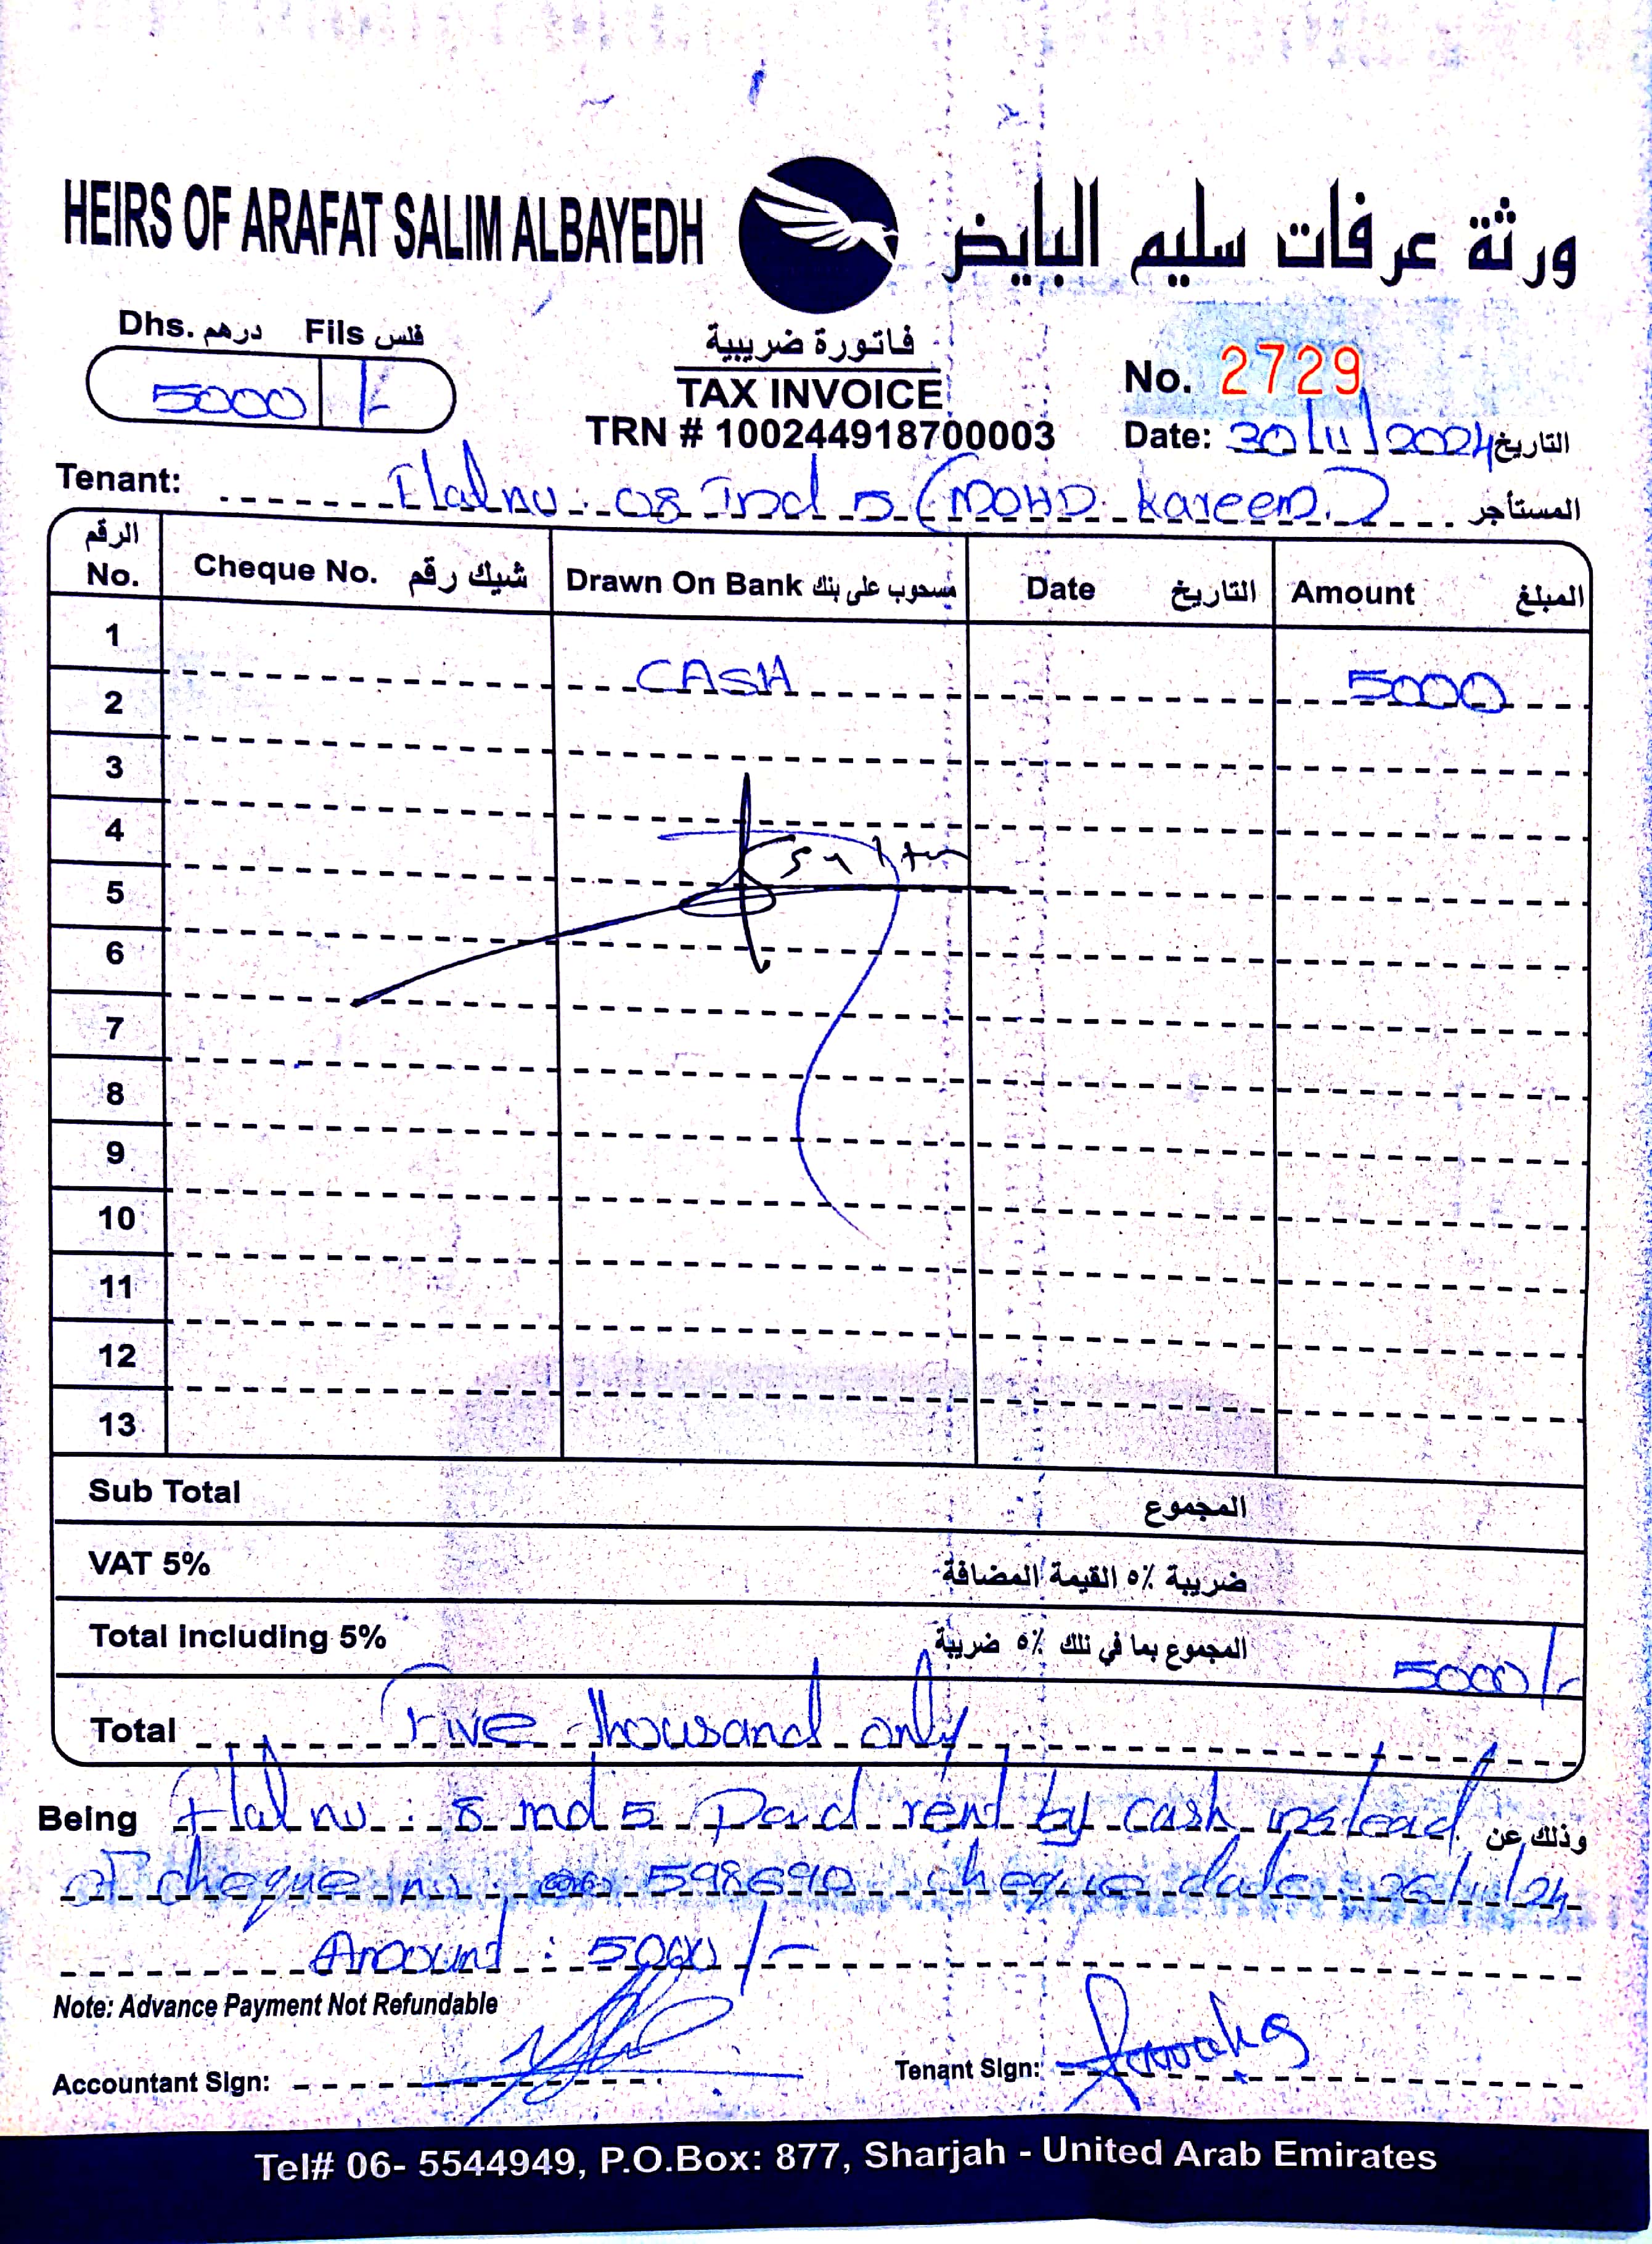 HEIRS OF ARAFAT SALIM ALBAYEDH ورثة عرفات سليم البايض
Dhs. درهم Fils فلس
5000 /-
فاتورة ضريبية
TAX INVOICE
TRN # 100244918700003
No. 2729
Date: 30/11/2024 التاريخ
Tenant: Flat no: 08 Ind 5 (MOHD. Kareem.) المستأجر
الرقم No. Cheque No. شيك رقم Drawn On Bank مسحوب على بنك Date التاريخ Amount المبلغ
1
CASH 5000
2
3
4
5
6
7
8
9
10
11
12
13
Sub Total المجموع
VAT 5% ضريبة ٥٪ القيمة المضافة
Total Including 5% المجموع بما في ذلك ٥٪ ضريبة 5000/-
Total Five thousand only
Being Flat no: 8 ind 5 Paid rent by cash instead وذلك عن
of cheque no: 598690 cheque date: 26/11/24
Amount: 5000/-
Note: Advance Payment Not Refundable
Accountant Sign:
Tenant Sign:
Tel# 06- 5544949, P.O.Box: 877, Sharjah - United Arab Emirates